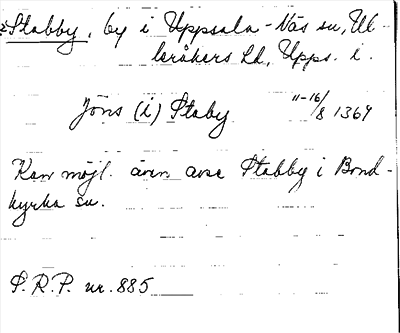 Stabby, by i Uppsala-Näs sn, Ul-
leråkers hd, Upps. l.
Jöns (i) Staby 11-16/8 1369
Kan möjl. även avse Stabby i Bond-
kyrka sn.
S.R.P. nr. 885